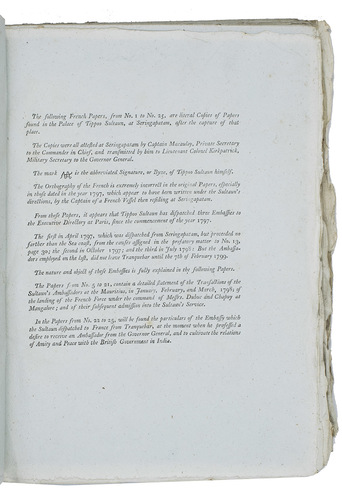 The following French Papers, from No. 1 to No. 25, are literal Copies of Papers
found in the Palace of Tippoo Sultaun, at Seringapatam, after the capture of that
place.
The Copies were all attested at Seringapatam by Captain Macauley, Private Secretary
to the Commander in Chief, and transmitted by him to Lieutenant Colonel Kirkpatrick,
Military Secretary to the Governor General.
The mark is the abbreviated Signature, or Byze, of Tippoo Sultaun himself.
The Orthography of the French is extremely incorrect in the original Papers, especially
in those dated in the year 1797, which appear to have been written under the Sultaun's
directions, by the Captain of a French Vessel then residing at Seringapatam.
From these Papers, it appears that Tippoo Sultaun has dispatched three Embassies to
the Executive Directory at Paris, since the commencement of the year 1797.
The first in April 1797, which was dispatched from Seringapatam, but proceeded no
farther than the Sea coast, from the causes assigned in the prefatory matter to No. 13,
page 39; the second in October 1797; and the third in July 1798: But the Ambassa-
dors employed on the last, did not leave Tranquebar until the 7th of February 1799.
The nature and object of these Embassies is fully explained in the following Papers.
The Papers from No. 5 to 21, contain a detailed Statement of the Transactions of the
Sultaun's Ambassadors at the Mauritius, in January, February, and March, 1798; of
the landing of the French Force under the command of Messrs. Dubuc and Chapuy at
Mangalore; and of their subsequent admission into the Sultaun's Service.
In the Papers from No. 22 to 25, will be found the particulars of the Embassy which
the Sultaun dispatched to France from Tranquebar, at the moment when he professed a
desire to receive an Ambassador from the Governor General, and to cultivate the relations
of Amity and Peace with the British Government in India.